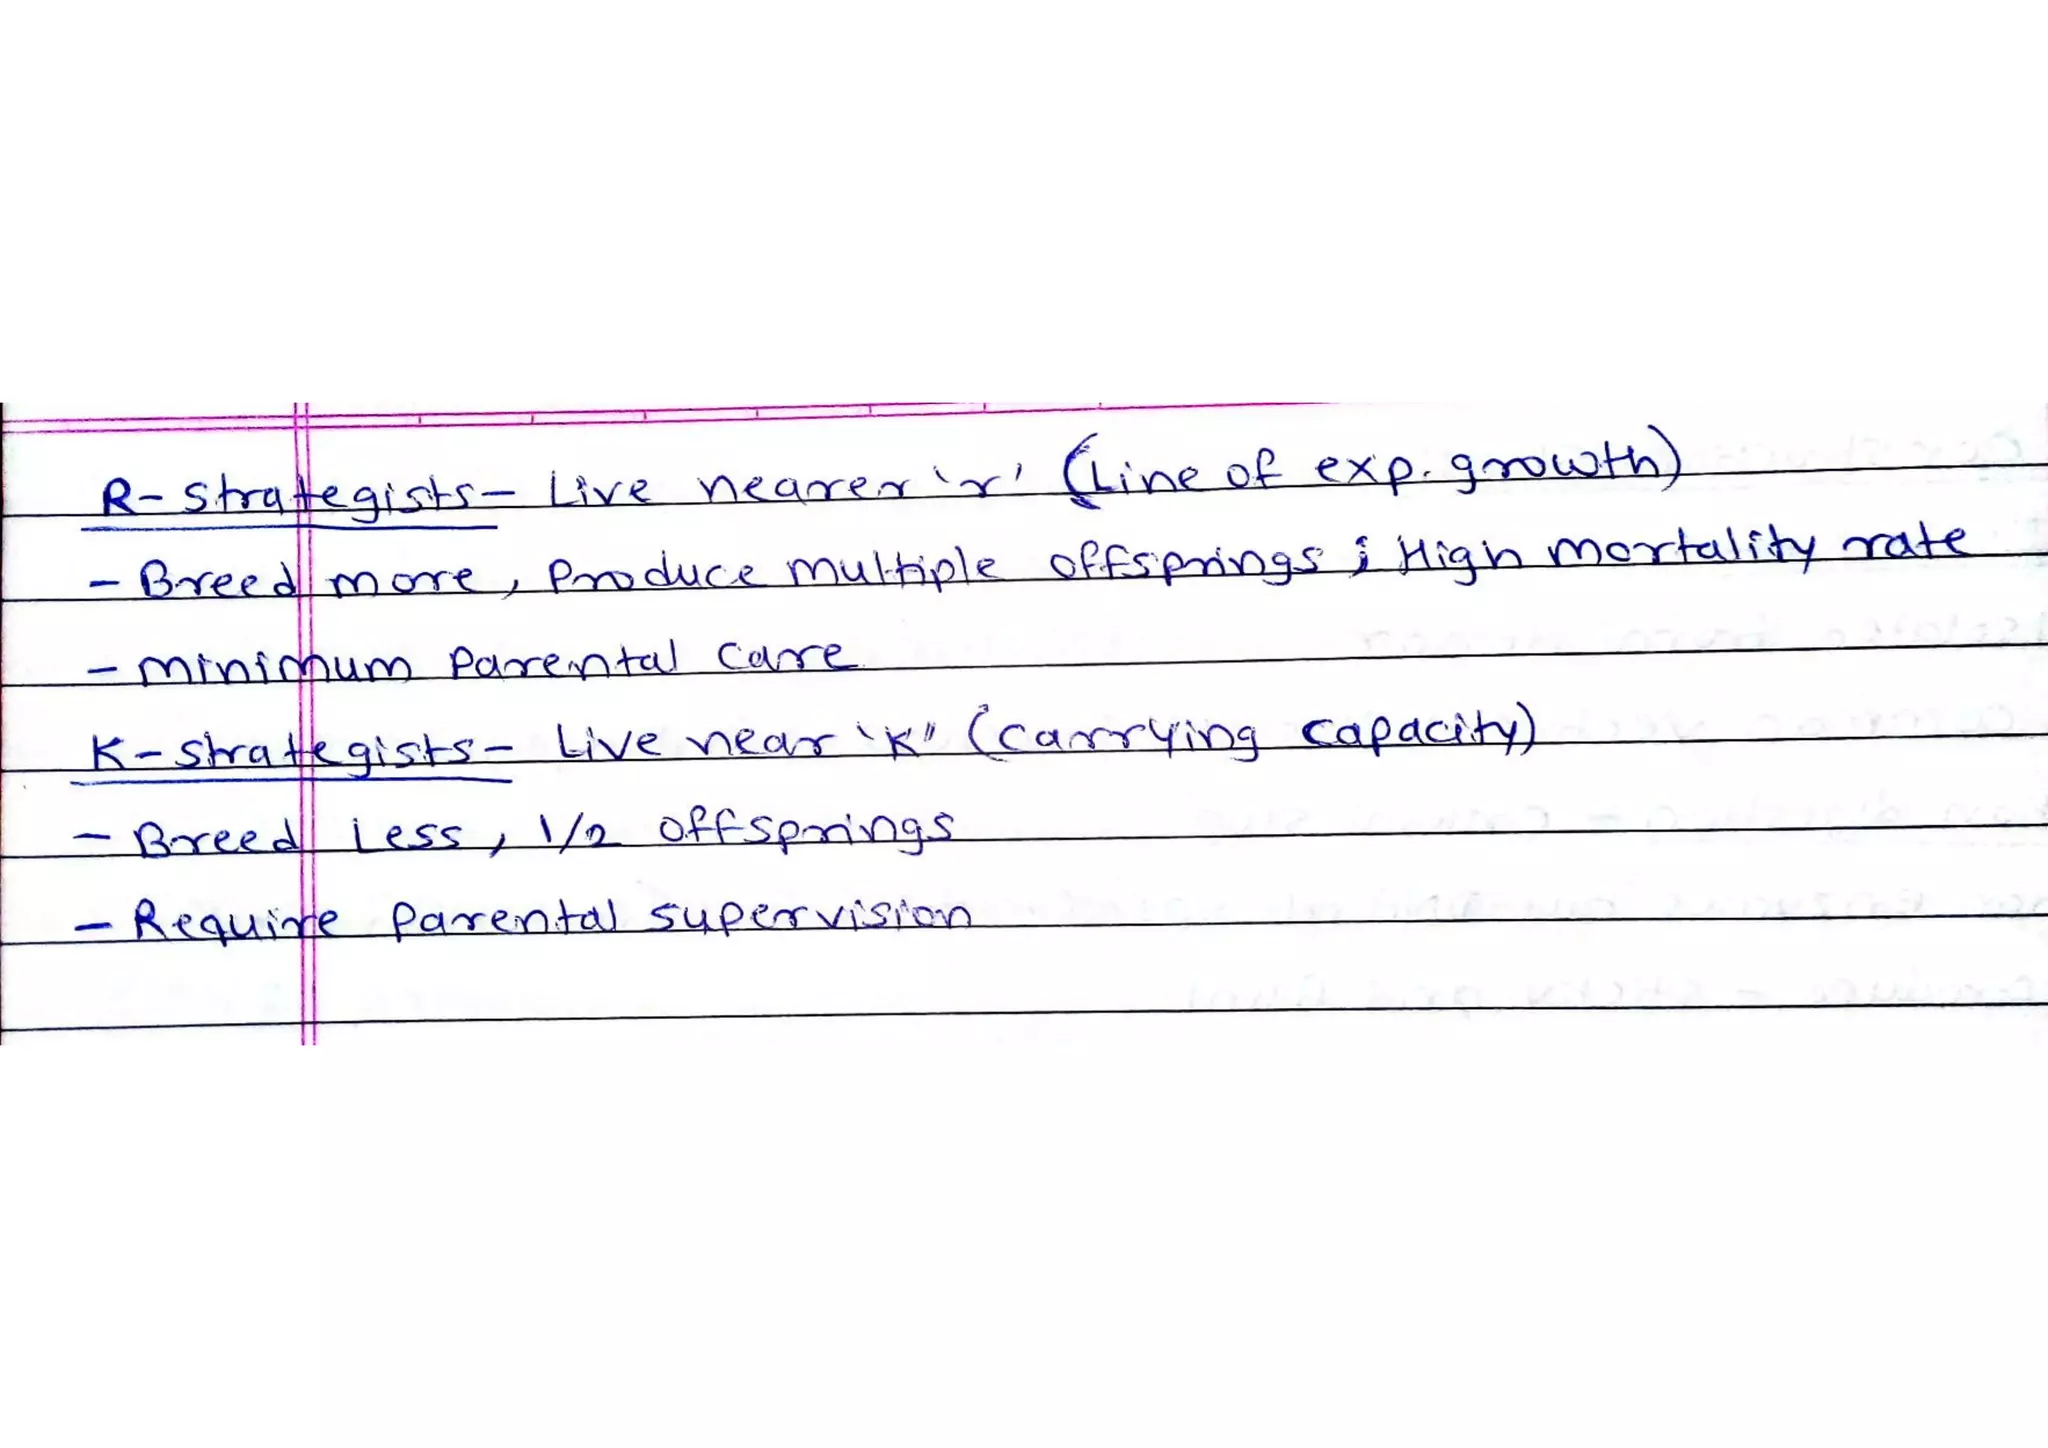 R- strategists- Live nearer 'r' (Line of exp. growth)
- Breed more, Produce multiple offsprings; High mortality rate
- minimum Parental care
K- strategists- Live near 'K" (carrying capacity)
- Breed Less, 1/2 offsprings
- Require Parental supervision